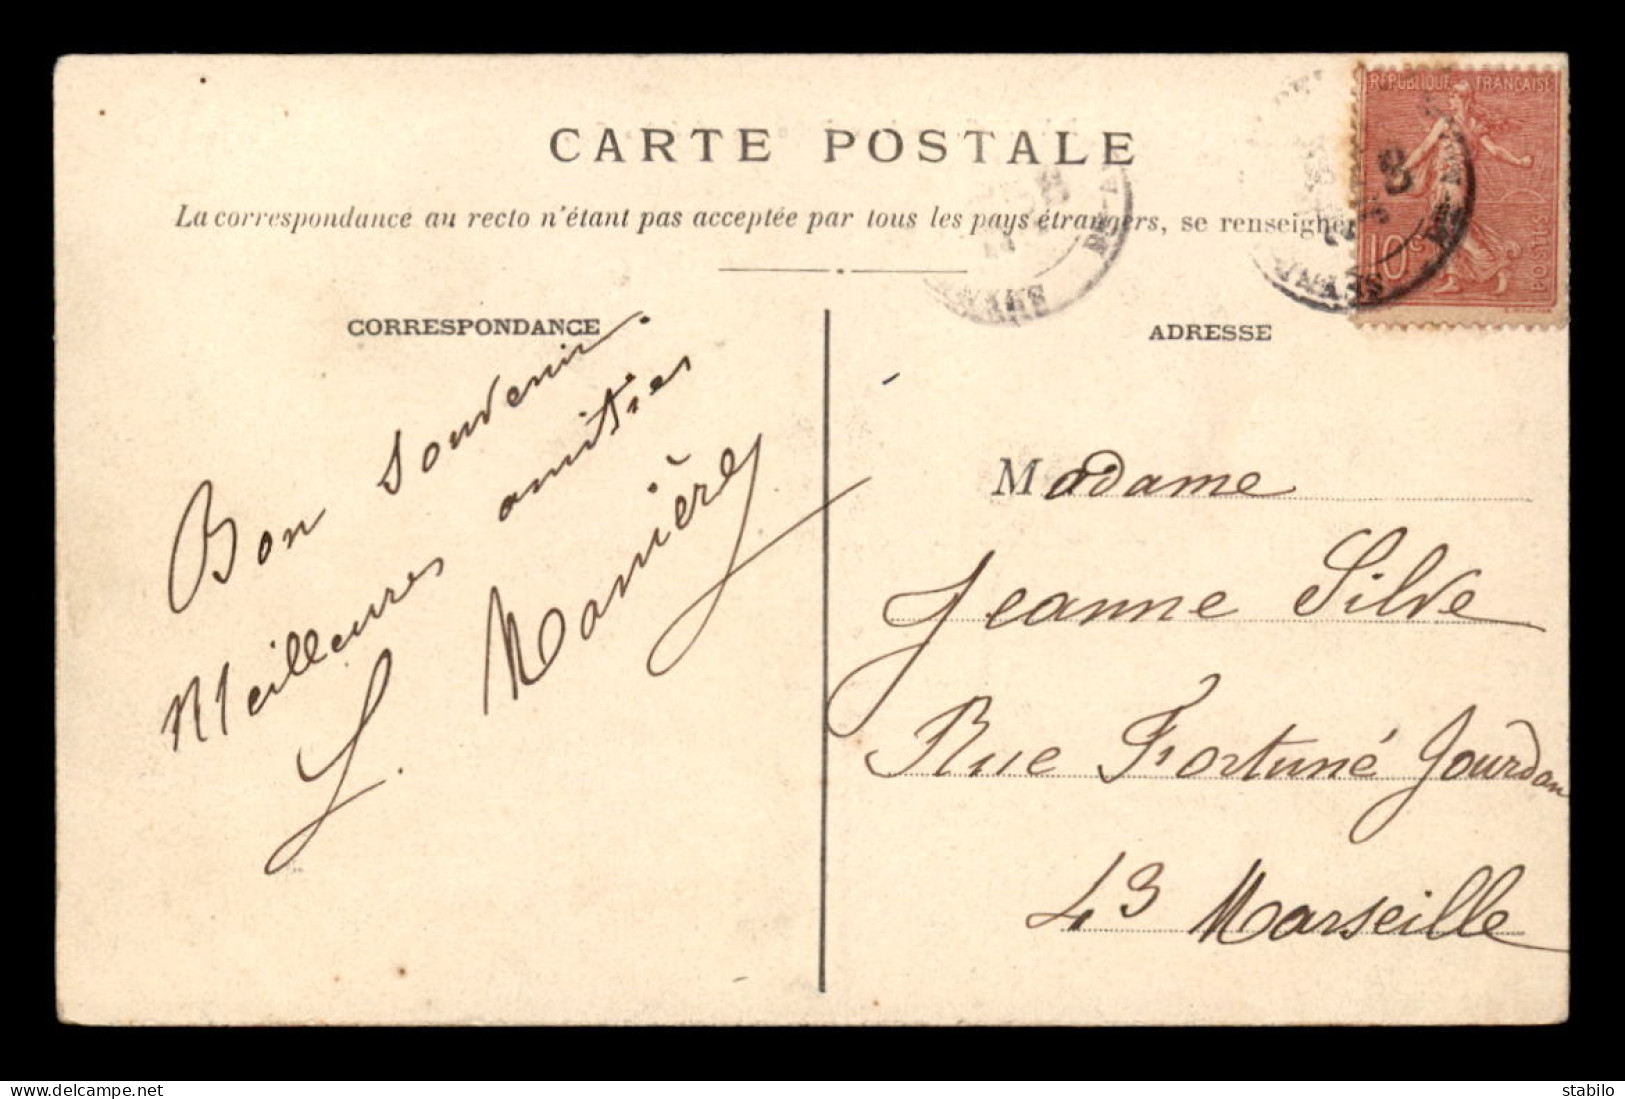 CARTE POSTALE
La correspondance au recto n'étant pas acceptée par tous les pays étrangers, se renseigner
REPUBLIQUE FRANÇAISE
10c
POSTES
CORRESPONDANCE
Bon souvenir.
Meilleures amitiés
L. Manière
ADRESSE
Madame
Jeanne Silve
Rue Fortuné Jourdan
43 Marseille
stabilo